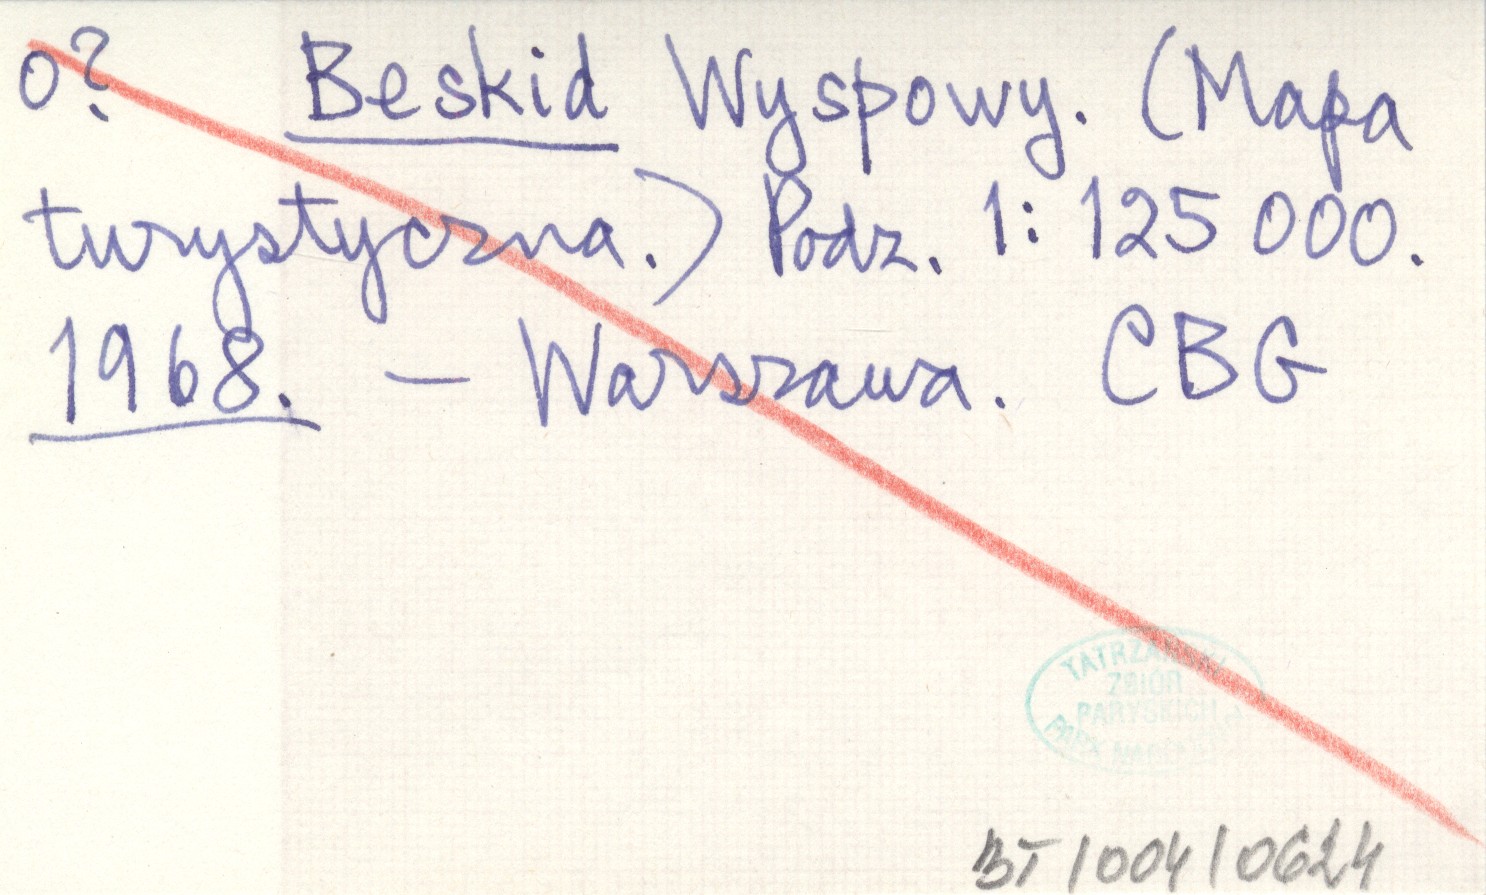 o? Beskid Wyspowy. (Mapa
turystyczna.) Podz. 1:125 000.
1968. — Warszawa. CBG
TATRZAŃSKI
ZBIÓR
PARYSKICH
PARK
BT/004/0624